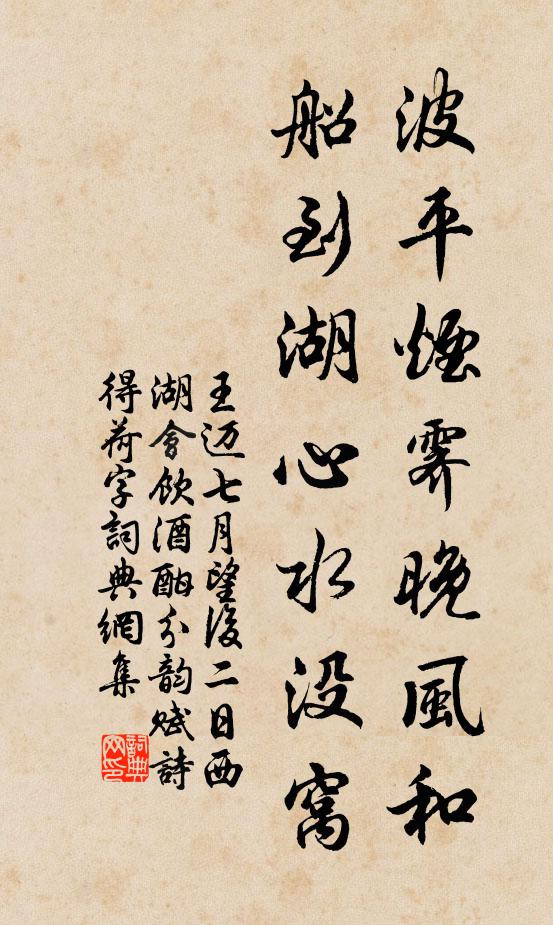 波平煙霽晚風和
船到湖心水没窩
王迈七月望後二日西
湖會飲酒酣分韵賦詩
得荷字詞典網集
詞典
网印